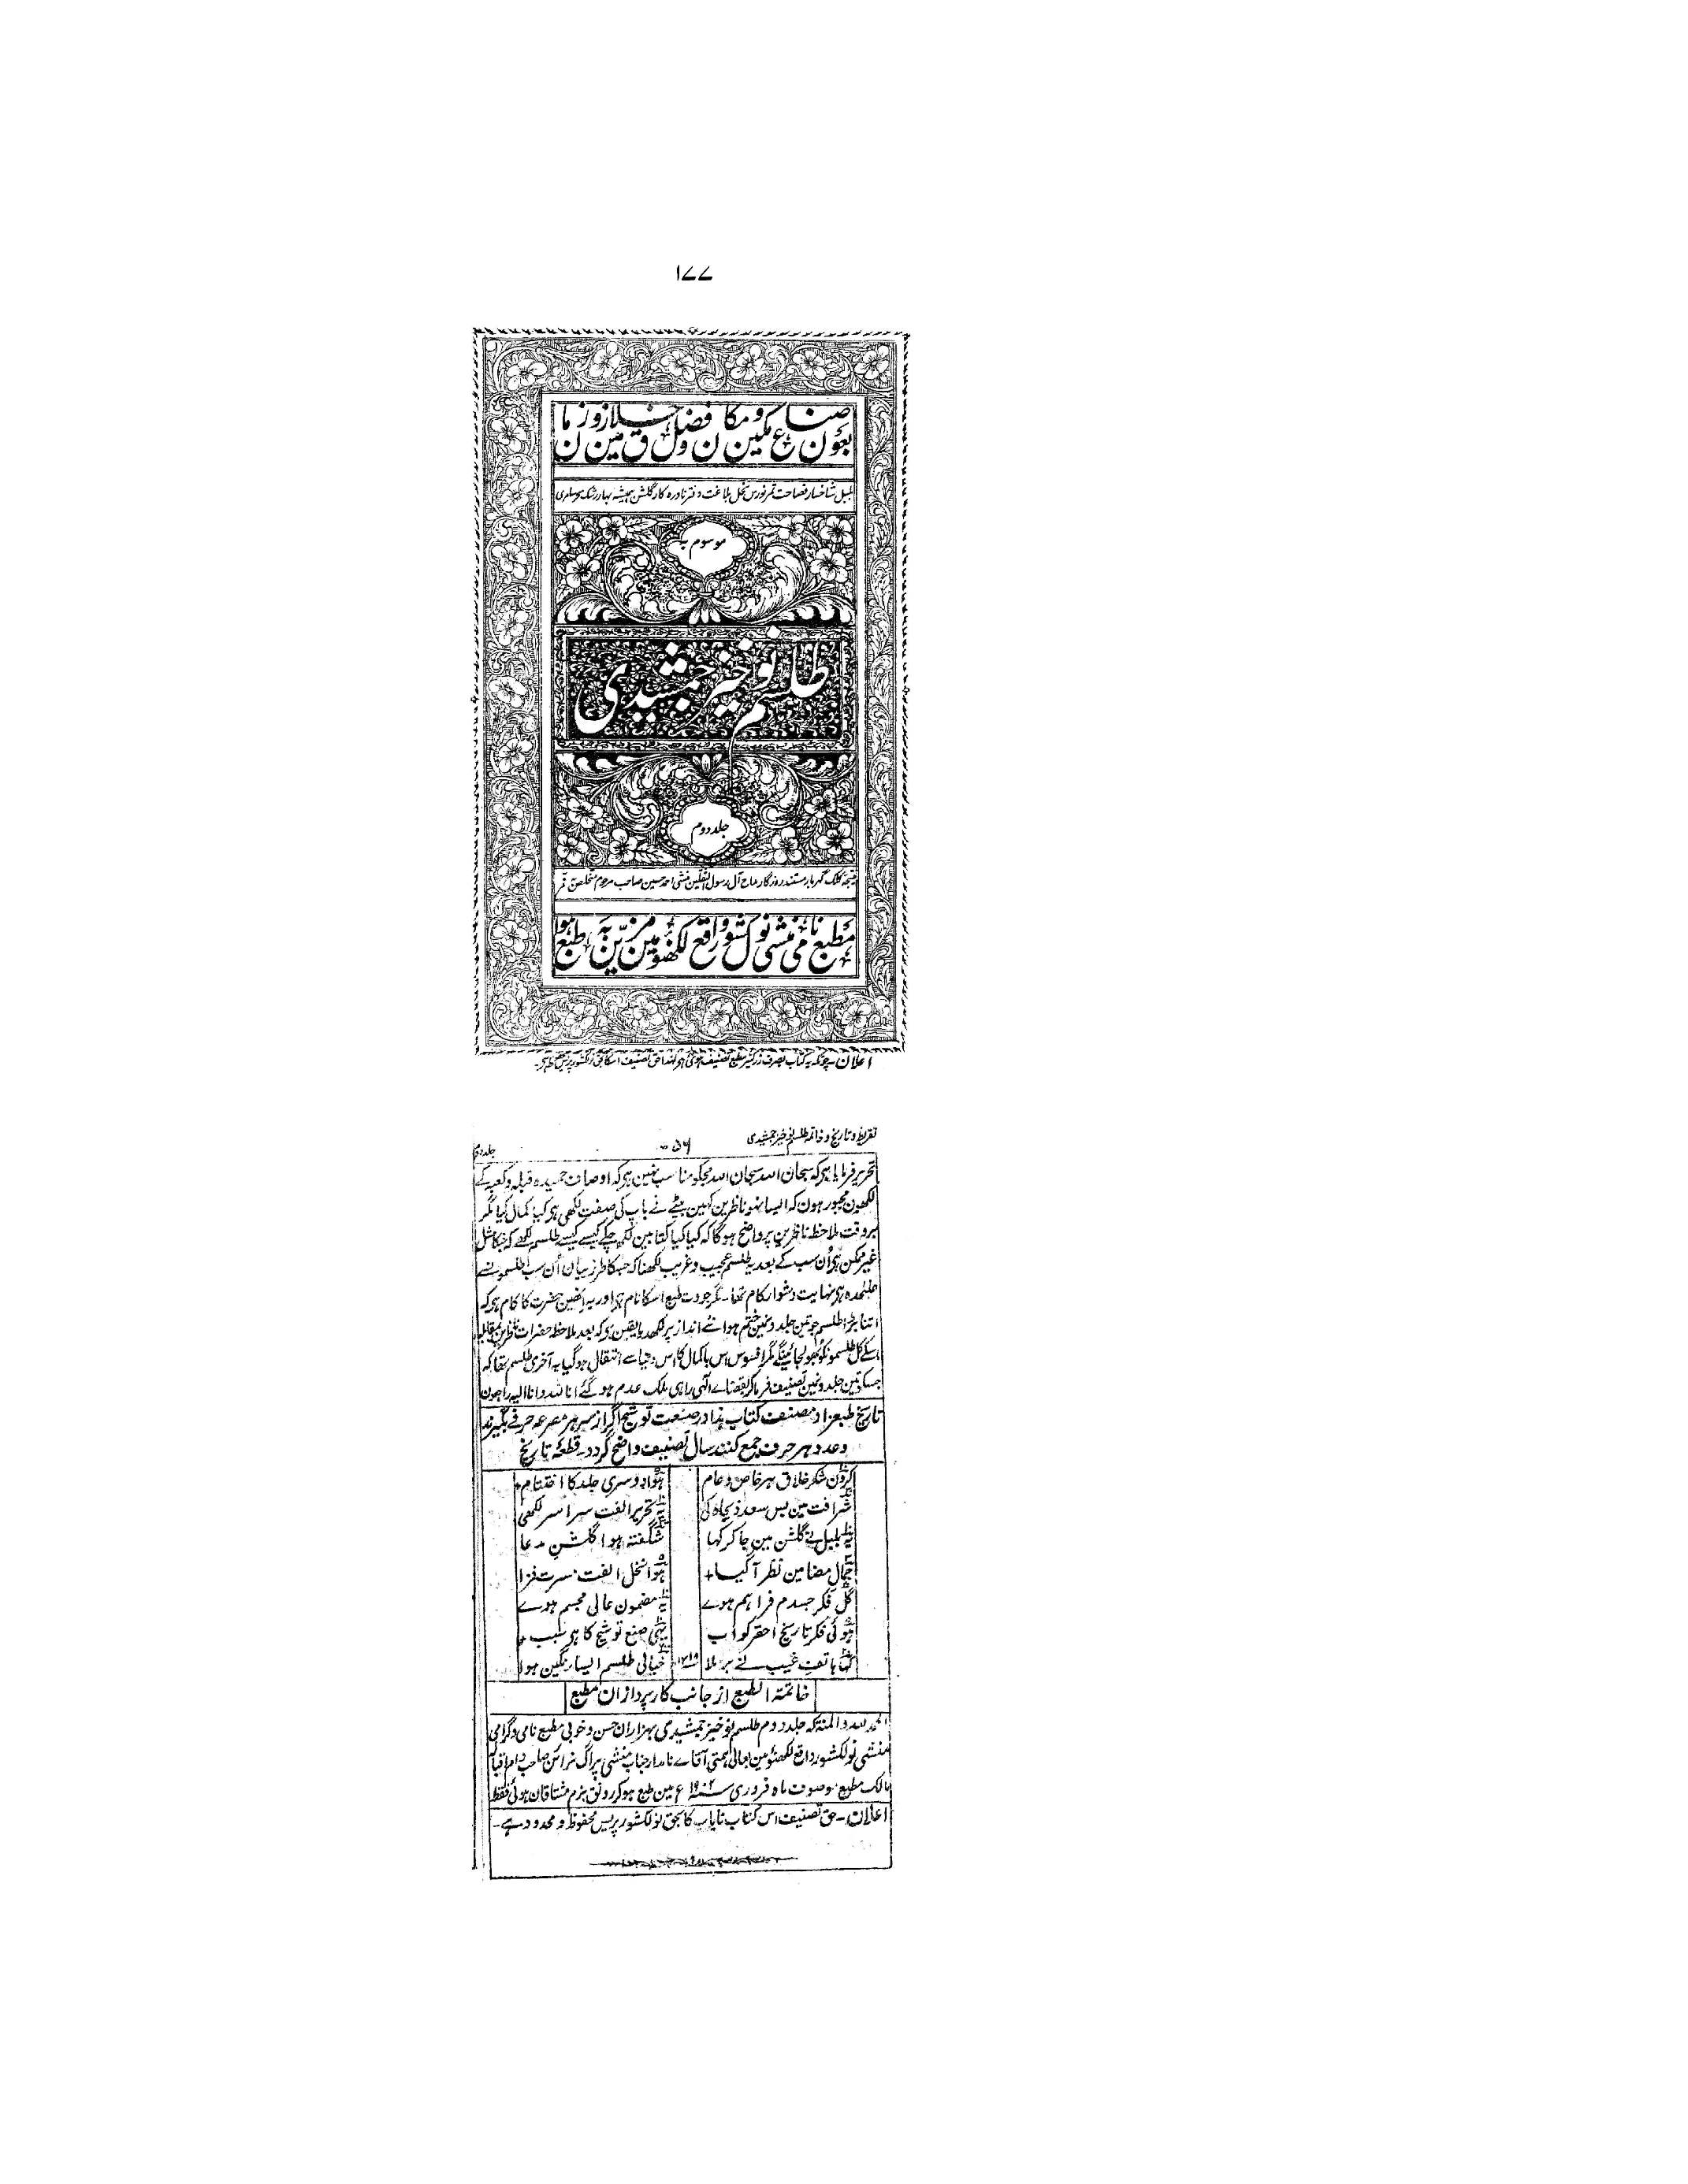 ۱۷۷
بعون صناع مکین و مکان و فضل خلاق زمین و زمان
بلبل شاخسار فصاحت ثمر نورس نخل بلاغت دفتر نادرہ کار گلشن ہمیشہ بہار رشک سحر سامری
موسوم بہ
طلسم نوخیز جمشیدی
جلد دوم
نتیجہ کلک گہربار مستند روزگار مداح آل رسول الثقلین منشی احمد حسین صاحب مرحوم متخلص قمر
مطبع نامی منشی نولکشور واقع لکھنؤ مین مزین بہ طبع ہوا
اعلان۔ چونکہ یہ کتاب بصرف زر کثیر مطبع تصنیف ہوئی ہر لہذا حق تصنیف اسکا بحق نولکشور پریس محفوظ ہر۔
تقریظ و تاریخ و خاتمہ طلسم نوخیز جمشیدی
جلد دوم
تحریر فرمایا ہر کہ سبحان اللہ سبحان اللہ مجکو مناسب نہین ہر کہ اوصاف حمیدہ قبلہ و کعبہ کے
لکھون مجبور ہون کہ ایسا نہو ناظرین کہین بیٹے نے باپ کی صفت لکھی ہر کیا کمال کیا مگر
بروقت ملاحظہ ناظرین پر واضح ہوگا کہ کیا کیا کتابین لکھ چکے کیسے کیسے طلسم لکھے کہ جنکا مثل
غیر ممکن ہر اُن سب کے بعد یہ طلسم عجیب و غریب لکھنا کہ جسکا طرز بیان اُن سب طلسمون سے
علیحدہ ہر نہایت دشوار کام تھا۔ مگر جودت طبع اسکا نام ہر اور یہ انھین حضرت کا کام ہر کہ
اتنا بڑا طلسم جو تین جلدونمین ختم ہوا نئے انداز پر لکھدیا یقین ہر کہ بعد ملاحظہ حضرات ناظرین بمقابلہ
اسکے کل طلسمونکو بھولجائینگے مگر افسوس اس باکمال کا اس دنیا سے انتقال ہوگیا یہ آخری طلسم تھا کہ
جسکو تین جلدونمین تصنیف فرماکر بقضاے الٰہی راہی ملک عدم ہوگئے انا للہ وانا الیہ راجعون
تاریخ طبعزاد مصنف کتاب ہذا در صنعت توشیح اگر از سر ہر مصرعہ حرفے بگیرند
و عدد ہر حرف جمع کنند سال تصنیف واضح گردد۔ قطعۂ تاریخ
کرون شکر خلاق ہر خاص و عام ہوا دوسری جلد کا اختتام
شرافت مین بس سعد ذیجاہ کی یہ تحریر الفت سراسر لکھی
یہ بلبل نے گلشن مین جا کر کہا شگفتہ ہوا گلشن مدعا
جمال مضامین نظر آگیا ہوا نخل الفت مسرت فزا
گل فکر جسدم فراہم ہوے یہ مضمون عالی مجسم ہوے
ہوئی فکر تاریخ احقر کو اب یہی صنع توشیح کا ہر سبب
کہا ہاتف غیب نے برملا خیالی طلسم ایسا رنگین ہوا
خاتمۃ الطبع از جانب کار پردازان مطبع
الحمد للہ والمنۃ کہ جلد دوم طلسم نوخیز جمشیدی بہزاران حسن و خوبی مطبع نامی و گرامی
منشی نولکشور واقع لکھنؤ مین بعالی ہمتی آقاے نامدار جناب منشی پراگ نرائن صاحب دام اقبالہ
مالک مطبع موصوف ماہ فروری سنہ ۱۹۰۲ ع مین طبع ہوکر رونق بزم مشتاقان ہوئی فقط
اعلان۔ حق تصنیف اس کتاب نایاب کا بحق نولکشور پریس محفوظ و محدود ہے۔